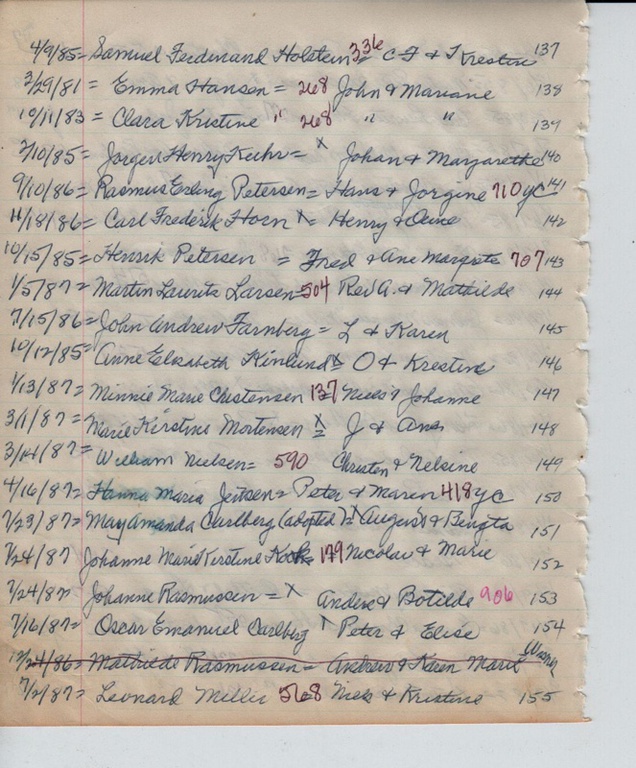 4/9/85 = Samuel Ferdinand Holstein 336 = C F & T Krestine 137
3/29/81 = Emma Hansen = 268 John & Mariane 138
10/11/83 = Clara Kristine " 268 " " 139
7/10/85 = Jorgen Henry Kuhr = x Johan & Margarethe 140
9/10/86 = Rasmus Erling Petersen = Hans & Jorgine 710 yc 141
11/18/86 = Carl Frederik Horn x = Henry & Oline 142
10/15/85 = Henrik Petersen = Fred & Ane Margrete 707 143
1/5/87 = Martin Lauritz Larsen = 504 Rev A. & Mathilde 144
7/15/86 = John Andrew Farnberg = L & Karen 145
10/12/85 = Anne Elizabeth Kinlund x = O & Krestine 146
1/13/87 = Minnie Marie Christensen 137 = Niels & Johanne 147
3/1/87 = Marie Kirstine Mortensen x = J & Ane 148
3/14/87 = William Nielsen = 590 Christen & Nelsine 149
4/16/87 = Hanna Maria Jensen = Peter & Maren 418 yc 150
7/23/87 = May Amanda Carlberg (adopted) = x August & Bengta 151
7/24/87 Johanne Marie Kirstine Koch = 179 Nicolai & Marie 152
7/24/87 Johanne Rasmussen = x Anders & Botilde 906 153
7/16/87 = Oscar Emanuel Carlberg x Peter & Elise 154
12/24/86 = Mathilde Rasmussen = Andrew & Karen Marie
7/2/87 = Leonard Miller 568 Niels & Kristine 155